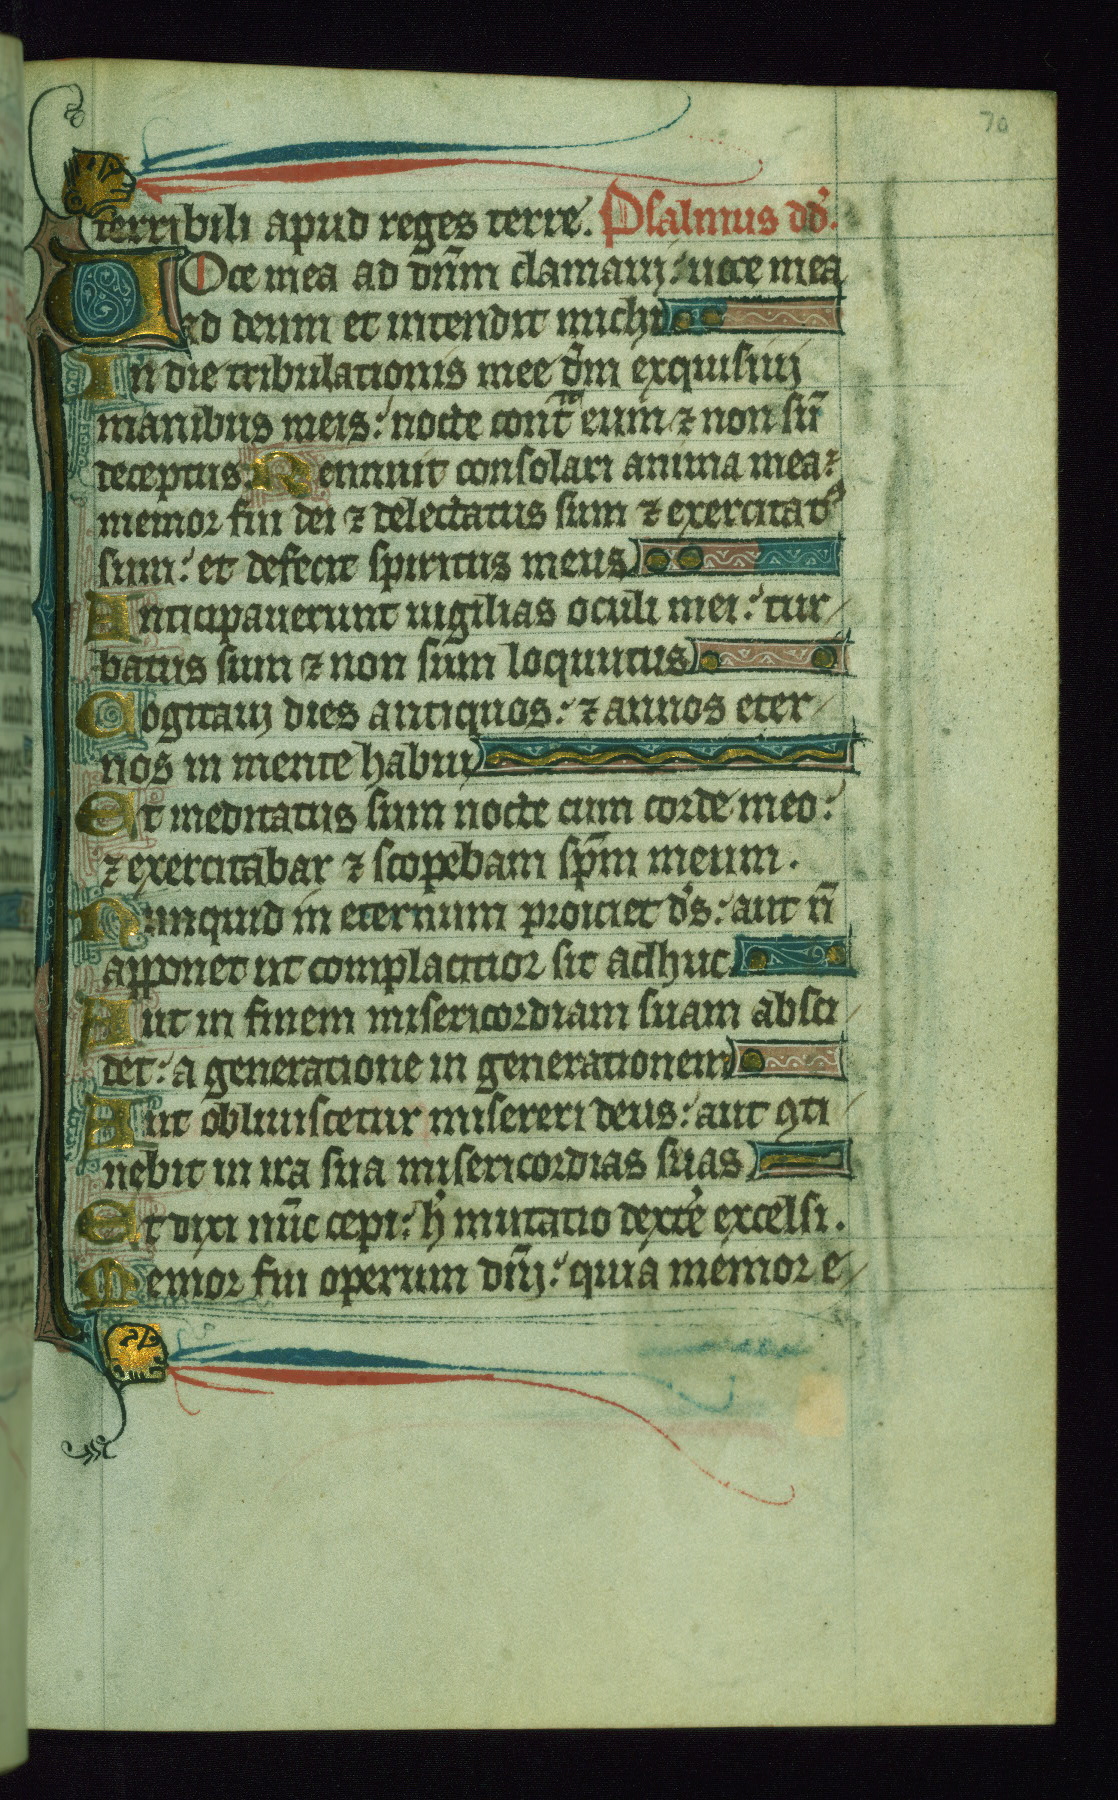 70
terribili apud reges terre. Psalmus dd̾.
VOce mea ad dn̄m clamauj: uoce mea
ad deum et intendit michi
In die tribulationis mee dm̄ exquisiuj
manibus meis: nocte cont̄ᵃ eum ⁊ non sū
deceptus. Rennuit consolari anima mea:
memor fui dei ⁊ delectatus sum ⁊ exercitatꝰ
sum: et defecit spiritus meus
Anticipauerunt uigilias oculi mei: tur
batus sum ⁊ non sum loquutus
Cogitauj dies antiquos: ⁊ annos eter
nos in mente habui
Et meditatus sum nocte cum corde meo:
⁊ exercitabar ⁊ scopebam sp̄m meum.
Nunquid in eternum proiciet d̾s: aut n̄
apponet ut complacitior sit adhuc
Aut in finem misericordiam suam absci
det: a generatione in generationem
Aut obliuiscetur misereri deus: aut ꝯti
nebit in ira sua misericordias suas
Et dixi nūc cepi: h̾ mutatio dexte̾ excelsi.
Memor fui operum dn̄j: quia memor e